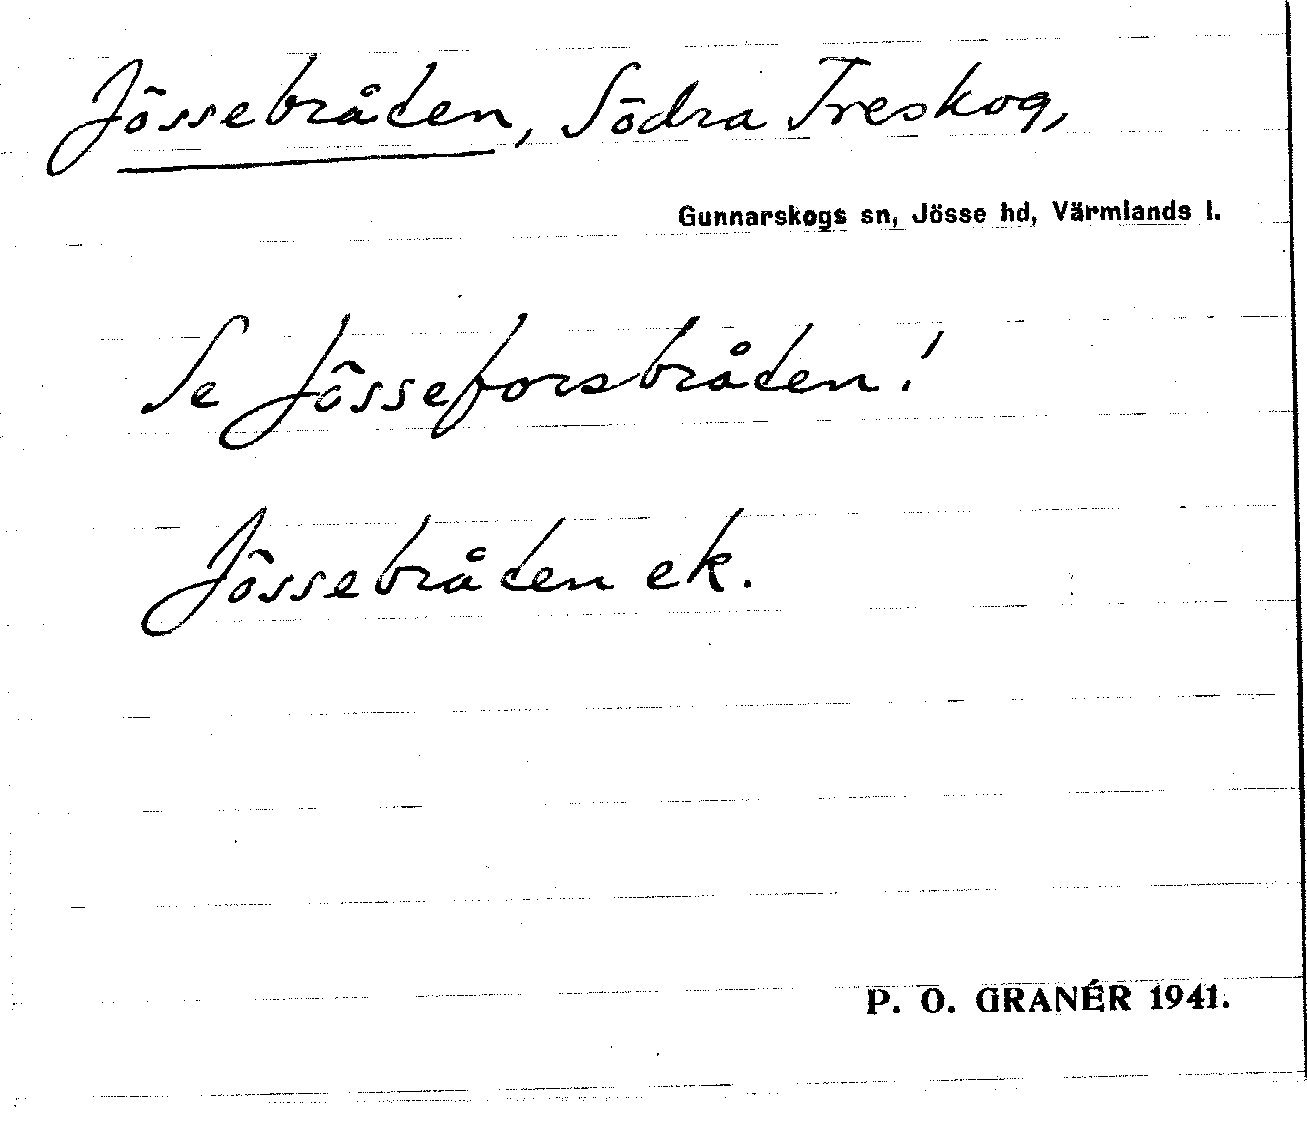 Jössebråten, Södra Treskog,
Gunnarskogs sn, Jösse hd, Värmlands l.
Se Jösseforsbråten!
Jössebråten ek.
P. O. GRANÉR 1941.